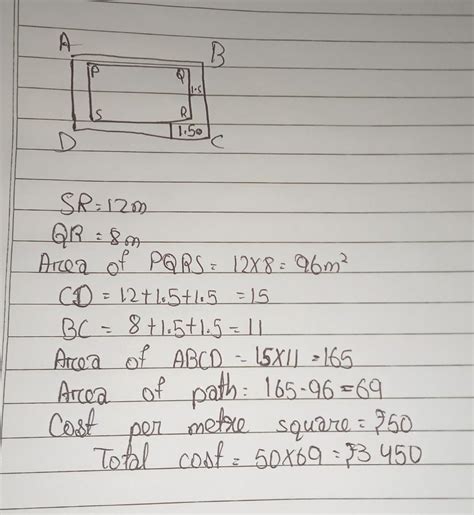 A
B
P
Q
1.5
S
R
1.50
D
C
SR = 12m
QR = 8m
Area of PQRS = 12x8 = 96m²
CD = 12+1.5+1.5 = 15
BC = 8+1.5+1.5 = 11
Area of ABCD = 15X11 = 165
Area of path: 165-96 = 69
Cost per metre square = ₹50
Total cost = 50X69 = ₹3 450